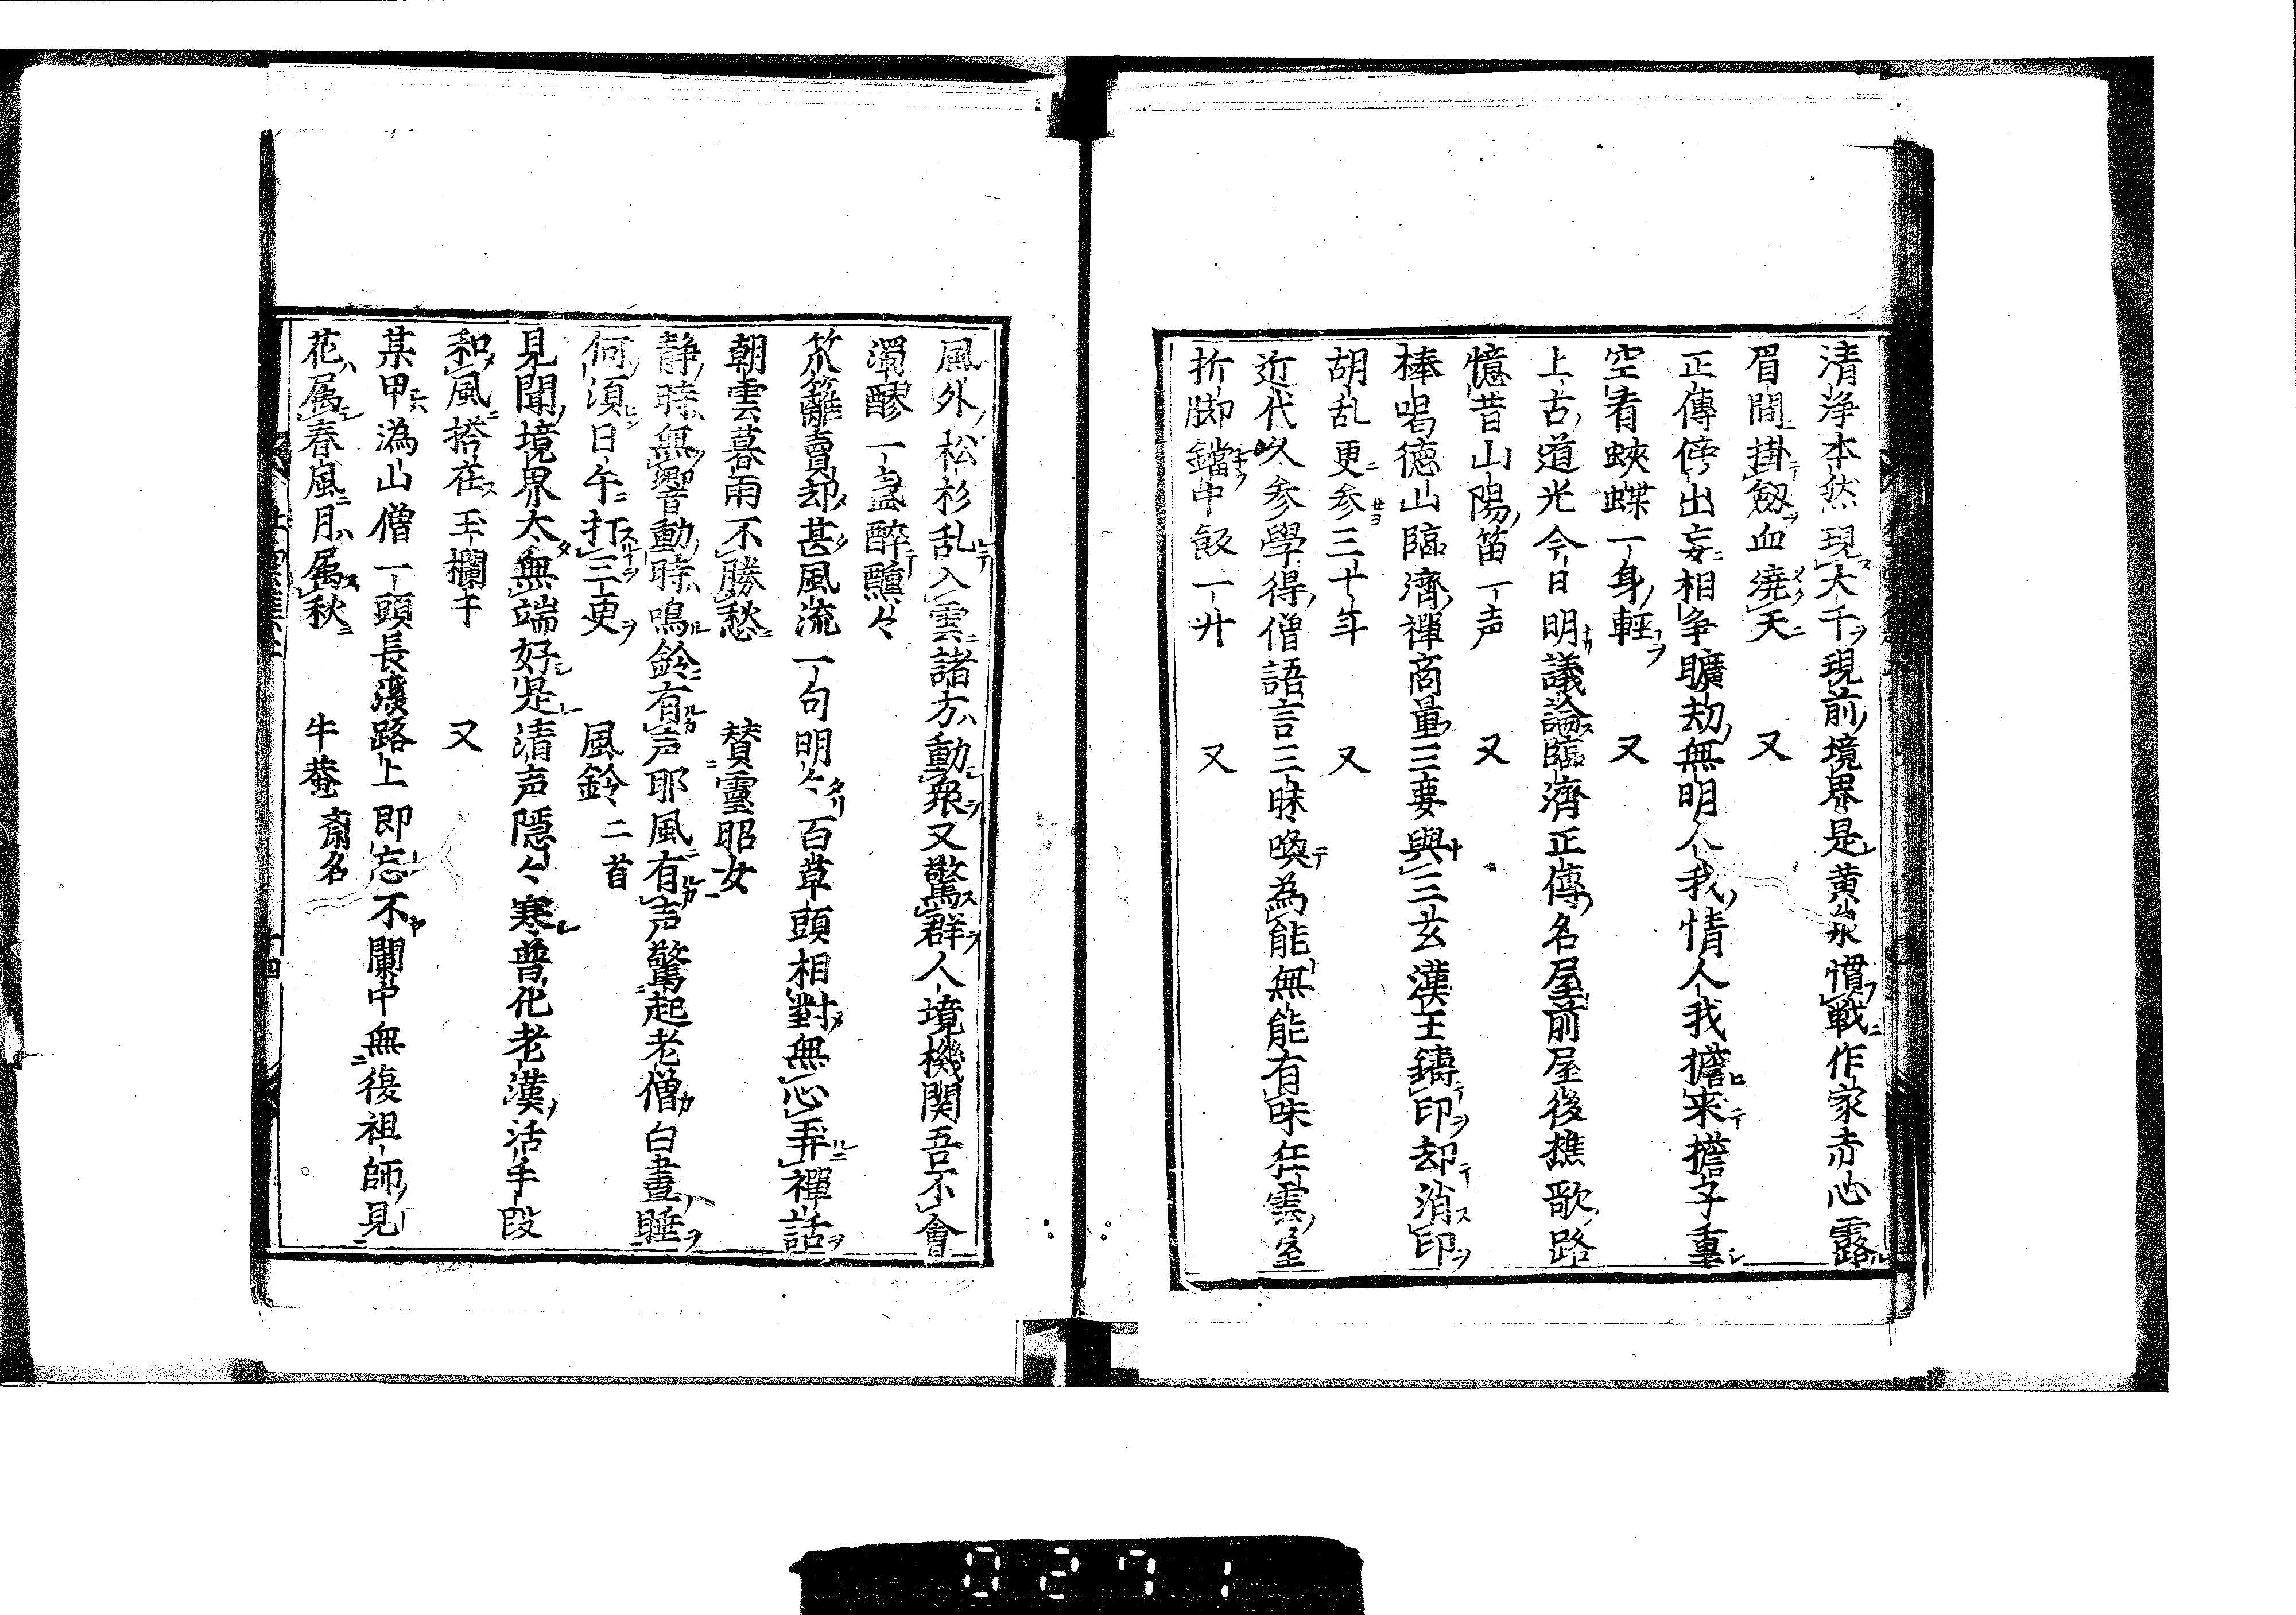 清浄本然現大千現前境界是黄泉慣戦作家赤心露
眉間掛劔血澆天　又
正傳傍出妄相争曠劫無明人我情人我擔来擔子重
空看蛺蝶一身軽　又
上古道光今日明議論臨濟正傳名屋前屋後樵歌路
憶昔山陽笛一声　又
棒喝徳山臨濟禪商量三要與三玄漢王鑄印却消印
胡乱更参三十年　又
近代久参學得僧語言三昧喚為能無能有味狂雲屋
折脚鐺中飯一升　又
風外松杉乱入雲諸方動衆又驚群人境機関吾不會
濁醪一盞醉醺々
笊籬賣却甚風流一句明々百草頭相對無心弄禪話
朝雲暮雨不勝愁　賛靈昭女
静時無響動時鳴鈴有声耶風有声驚起老僧白晝睡
何須日午打三更　風鈴二首
見聞境界太無端好是清声隱々寒普化老漢活手段
和風搭在玉欄干　又
某甲溈山僧一頭長溪路上即忘不闌中無復祖師見
花属春風月属秋　牛菴斎名
十四
0271